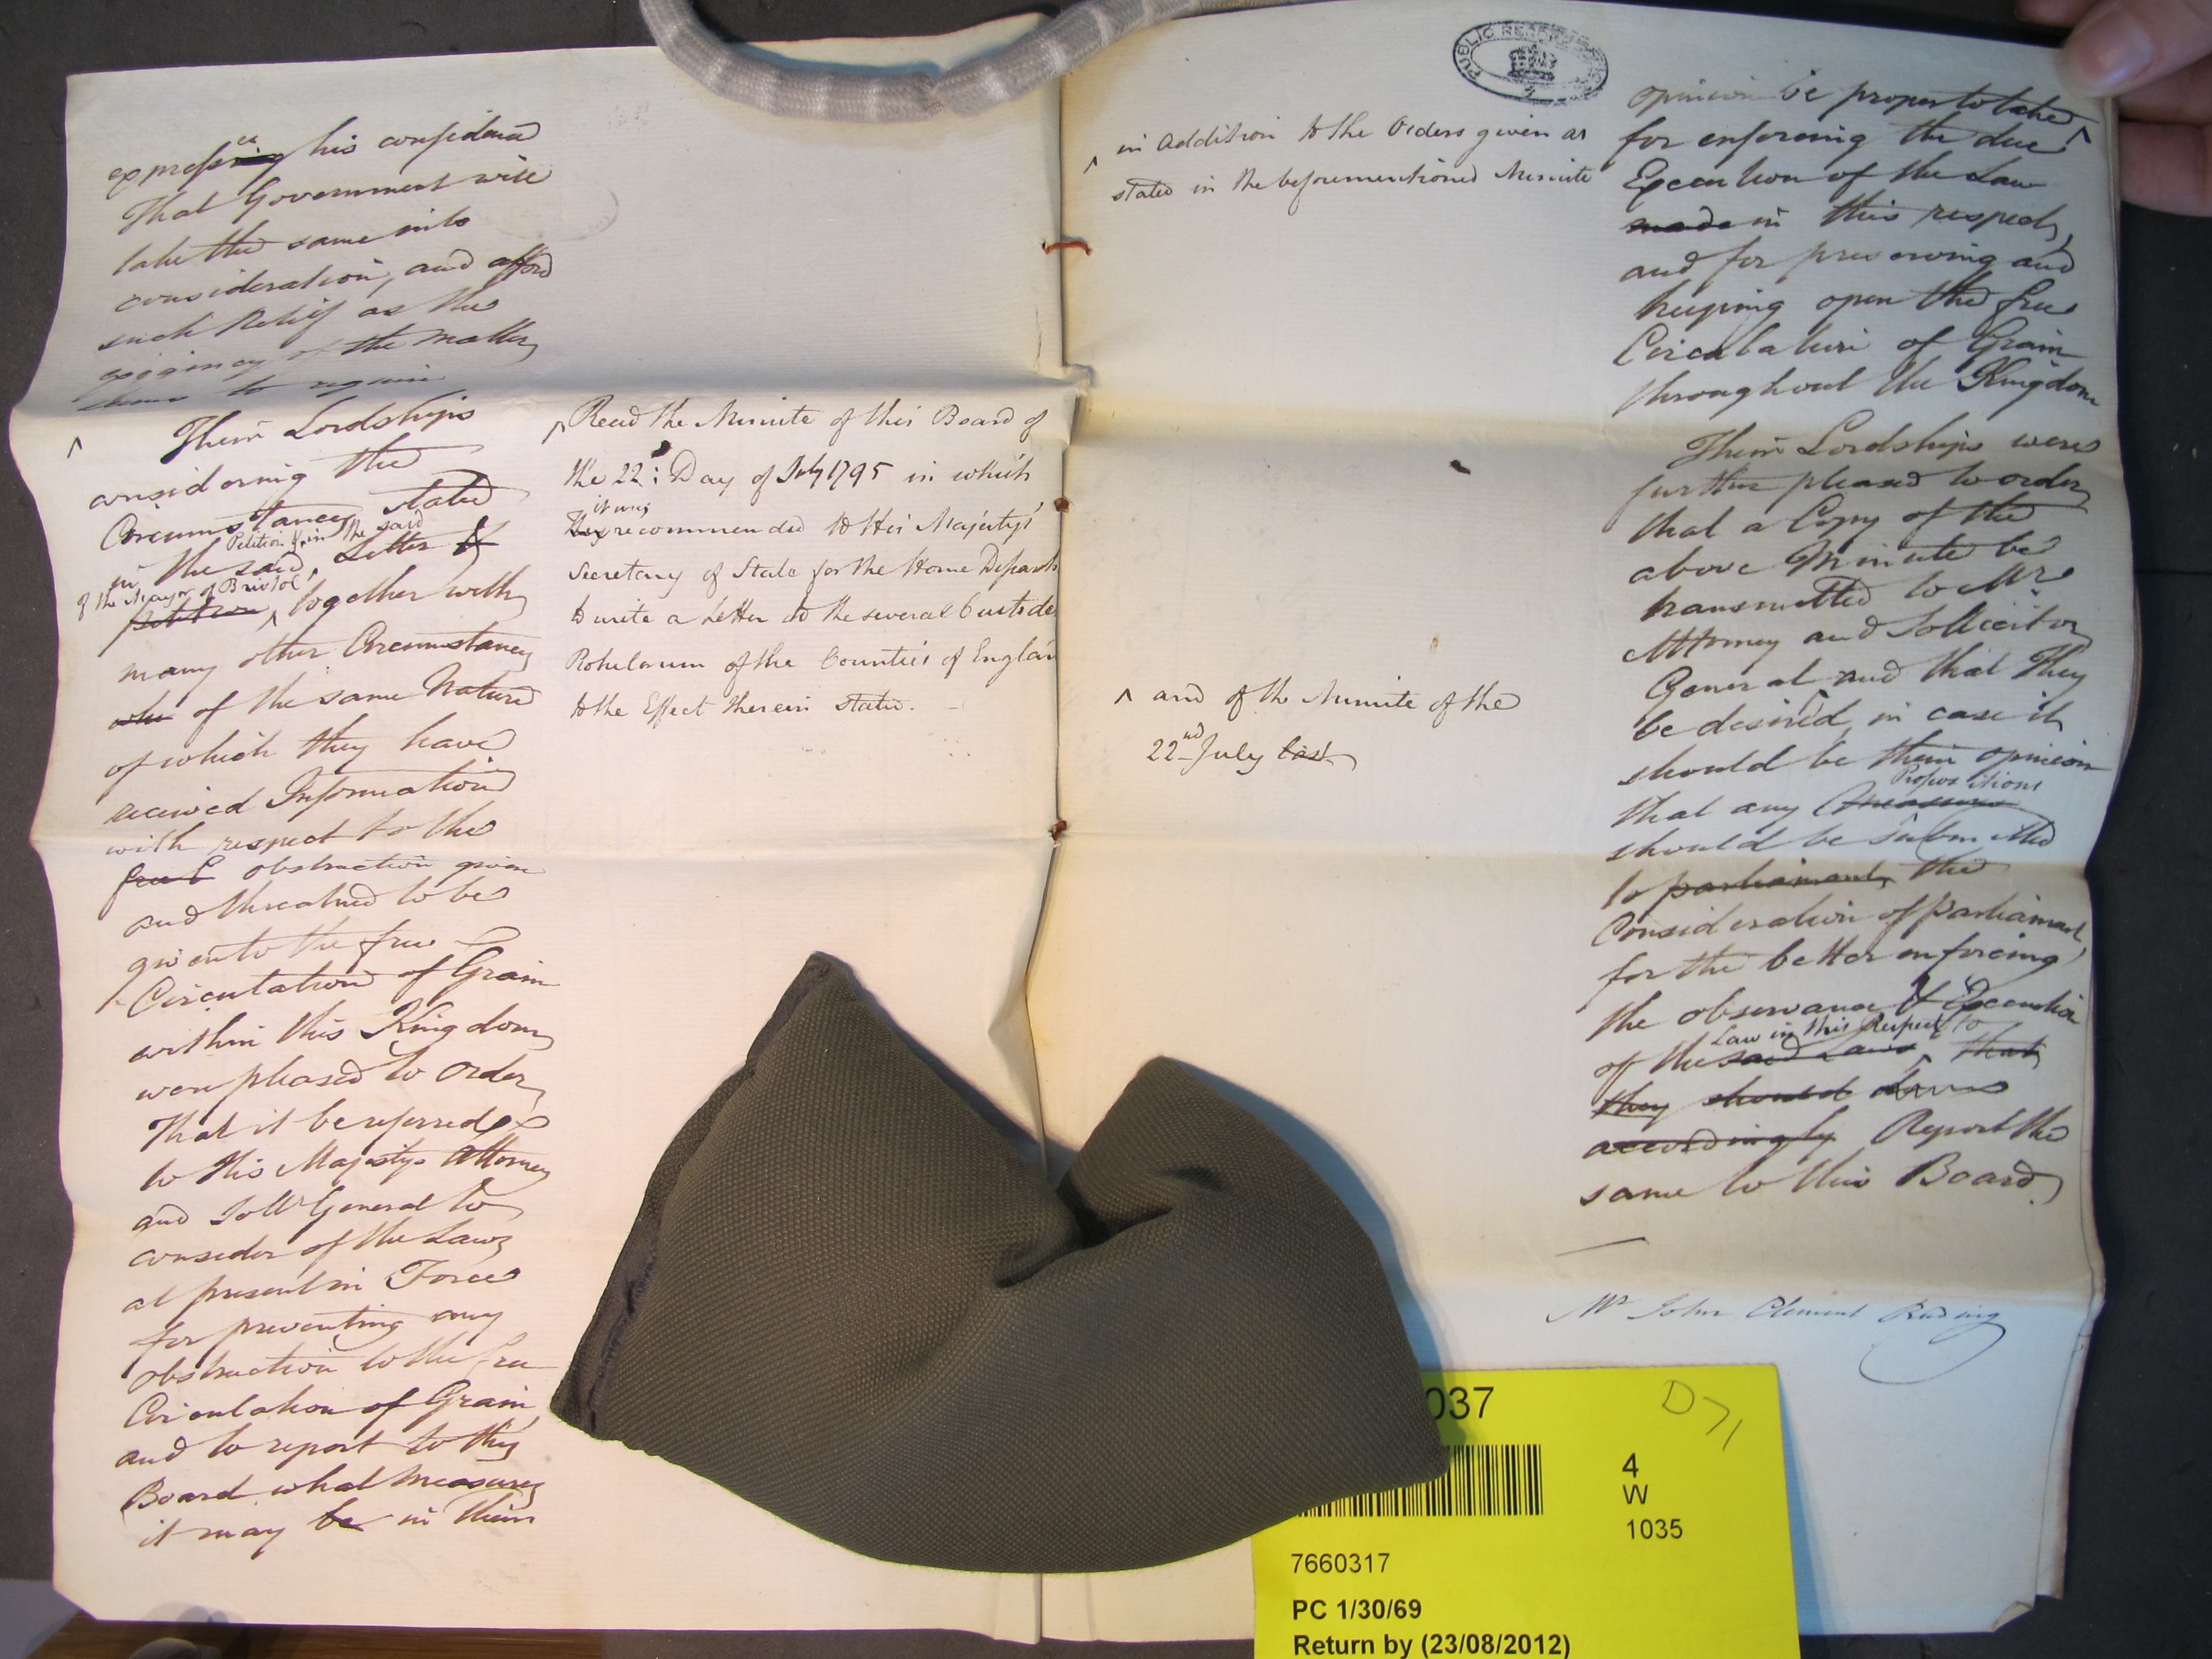 expresses his confidence
that Government will
take the same into
consideration, and afford
such Relief as the
exigency of the matter
seems to require
^ Their Lordships
considering the
Circumstances stated
Petition & in the said
in the said ^ Letter &
of the Mayor of Bristol
petition, ^ together with
many other Circumstances
whi of the same Nature
of which they have
received Information
with respect to the
free C obstruction given
and threatned to be
given to the free
Circulation of Grain
within this Kingdom
were pleased to order
That it be referred
to His Majestys Attorney
and Sollr General to
consider of the Laws
at present in Force
for preventing any
obstruction to the free
Circulation of Grain
and to report to this
Board what Measures
it may be in their
^ Read the Minute of this Board of
the 22: Day of July 1795 in which
it was
recommended to His Majesty's
Secretary of State for the Home Departt
to write a Letter to the several Custodes
Rotulorum of the Counties of England
to the Effect therein stated.
PUBLIC RECORD OFFICE
^ in Addition to the Orders given as
stated in the beforementioned Minute
^ and of the Minute of the
22nd July last
opinion be proper to take ^
for enforcing the due
Execution of the Law
made in this respect,
and for preserving and
keeping open the free
Circulation of Grain
throughout the Kingdom
Their Lordships were
further pleased to order
that a Copy of the
above Minute be
transmitted to Mr.
Attorney and Sollicitor
General ^ and that They
be desired, in case it
should be their opinion
Propositions
that any measures
should be submitted
to parliament, the
Consideration of parliament
for the better enforcing
the observance & Execution
Law in this Respect to
of the said Laws, ^ that
they should
accordingly Report the
same to this Board.
Mr John Clement Ruding
037
D71
4
W
1035
7660317
PC 1/30/69
Return by (23/08/2012)